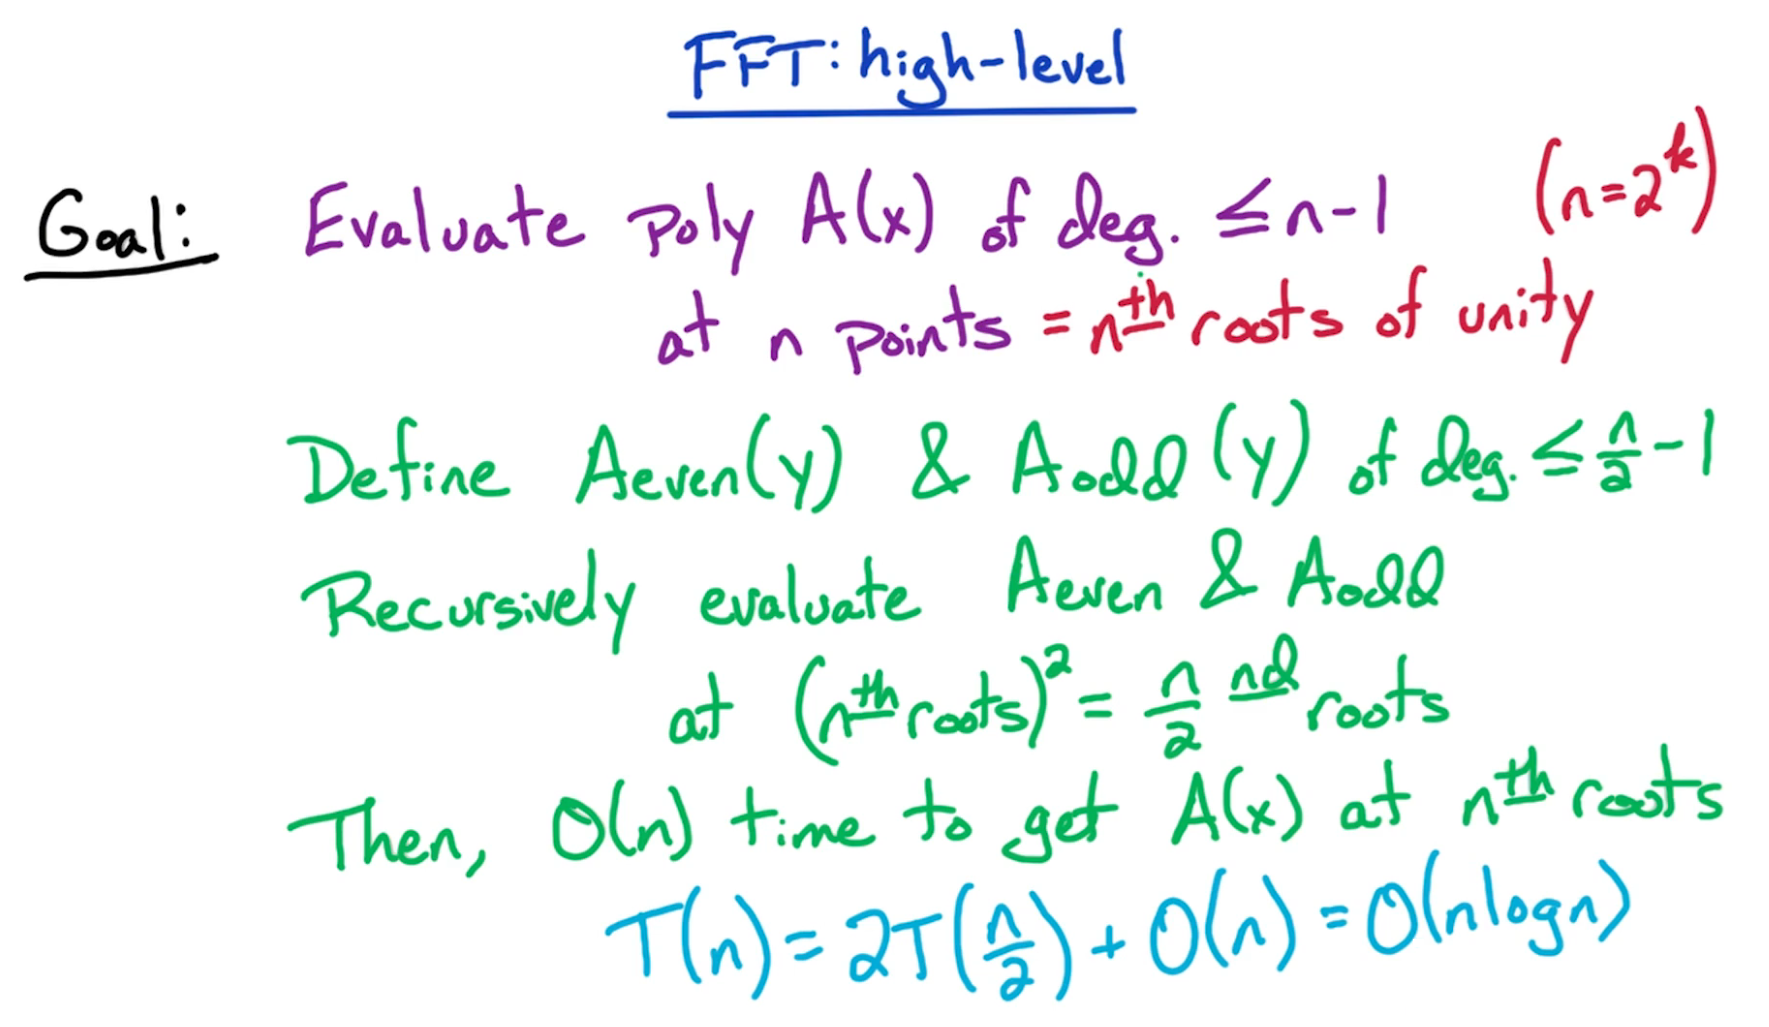 FFT: high-level
Goal: Evaluate poly A(x) of deg. ≤ n-1 (n=2^k)
at n points = n^th roots of unity
Define Aeven(y) & Aodd(y) of deg. ≤ n/2 - 1
Recursively evaluate Aeven & Aodd
at (n^th roots)^2 = n/2 nd roots
Then, O(n) time to get A(x) at n^th roots
T(n) = 2T(n/2) + O(n) = O(nlogn)